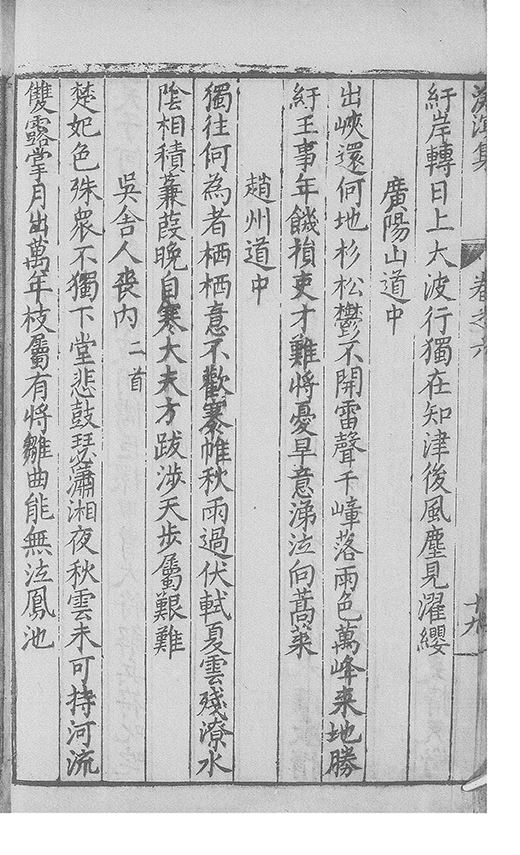 滄溟集 卷之六 十九
紆岸轉日上大波行獨在知津後風塵見濯纓
廣陽山道中
出峽還何地杉松鬱不開雷聲千嶂落雨色萬峰来地勝
紆王事年饑損吏才難將憂早意涕泣向蒿萊
趙州道中
獨往何為者栖栖意不歡褰帷秋雨過伏軾夏雲殘潦水
陰相積蒹葭晚自寒大夫方跋涉天步屬艱難
吳舍人喪內 二首
楚妃色殊衆不獨下堂悲鼓瑟瀟湘夜秋雲未可持河流
雙露掌月出萬年枝屬有將雛曲能無泣鳳池